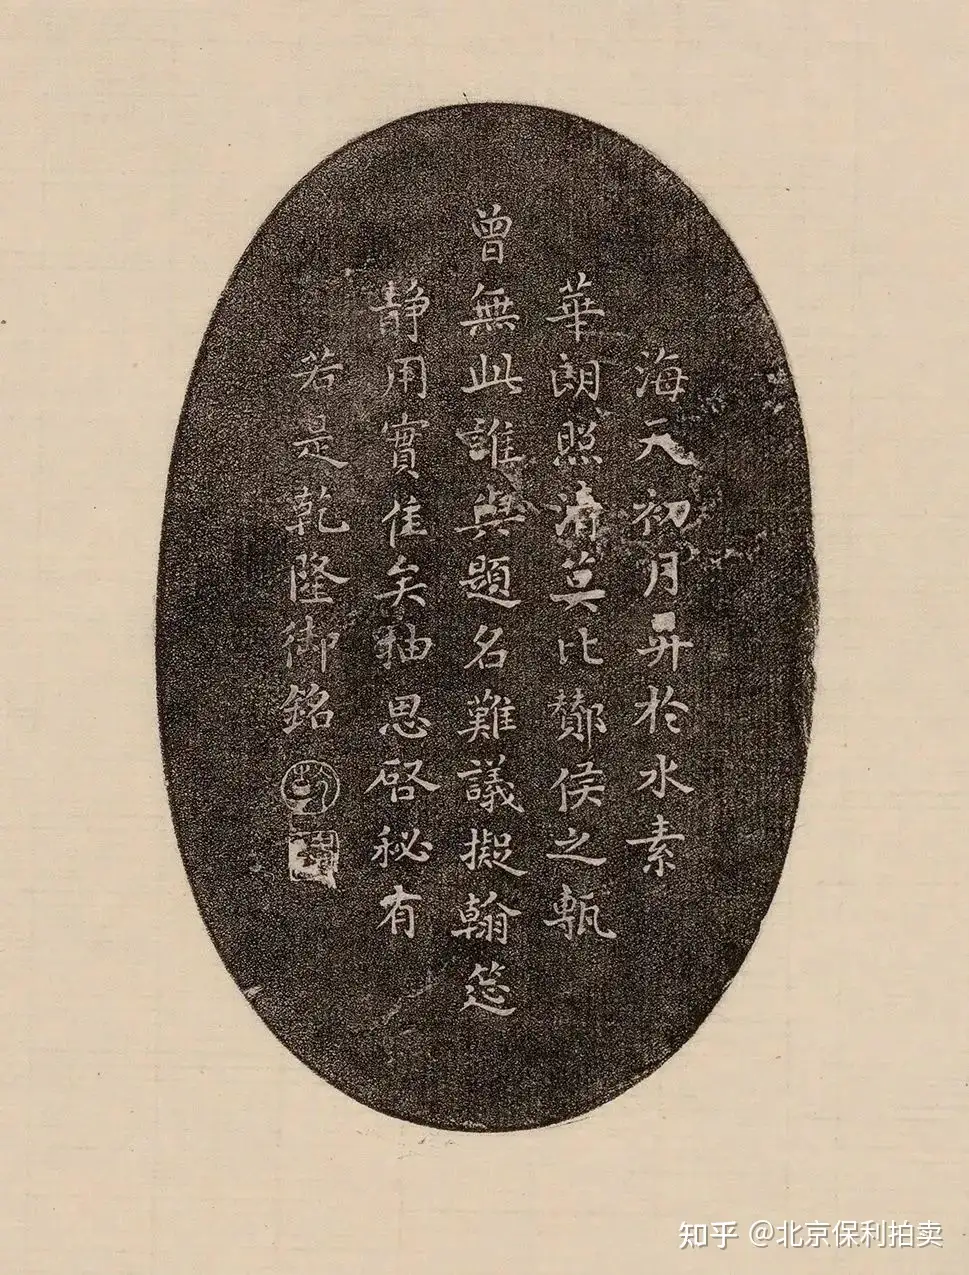 海天初月升於水素
華朗照清莫比鄼侯之甎
曾無此誰與題名難議擬翰筵
靜用實佳矣抽思啓秘有
若是乾隆御銘
知乎 @北京保利拍卖